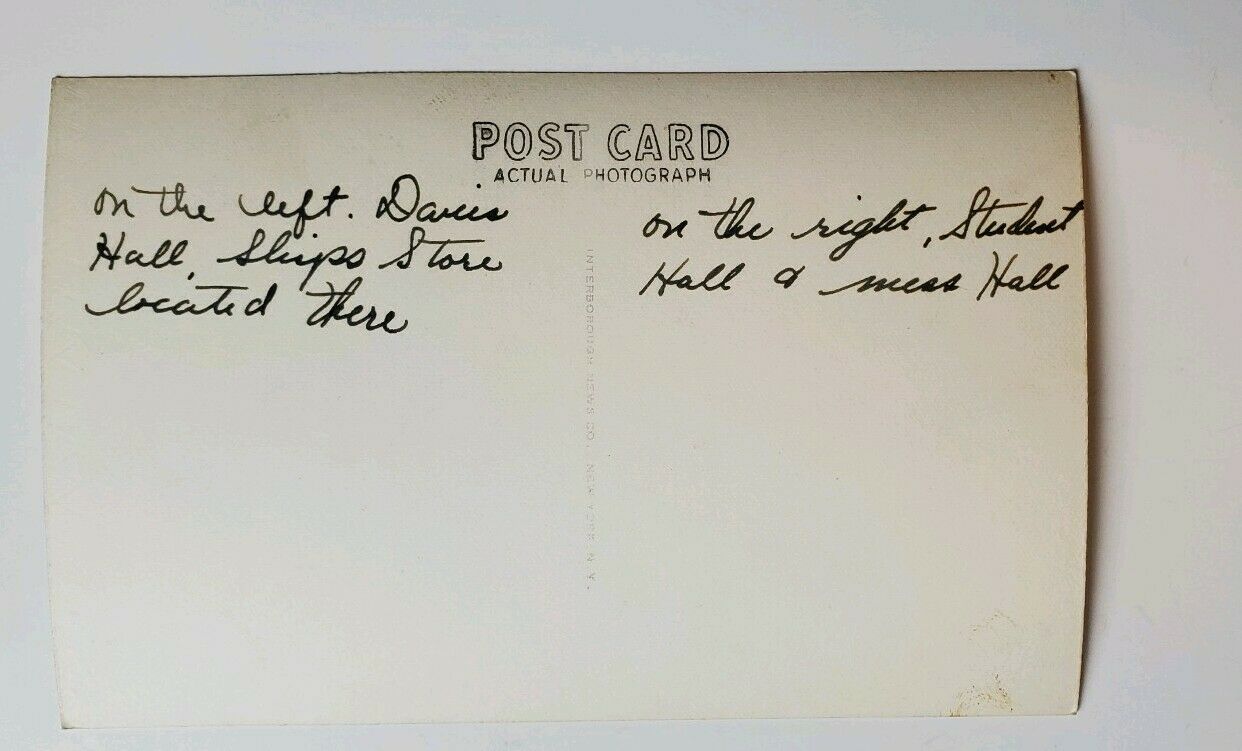 POST CARD
ACTUAL PHOTOGRAPH
on the left. Davis
Hall, Ships Store
located there
on the right, Student
Hall & mess Hall
INTERBOROUGH NEWS CO. NEW YORK N.Y.